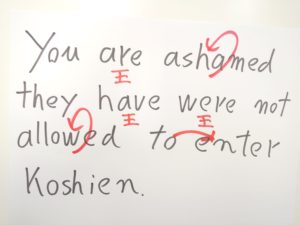 You are ashamed
王
they have were not
王 王
allowed to enter
Koshien.